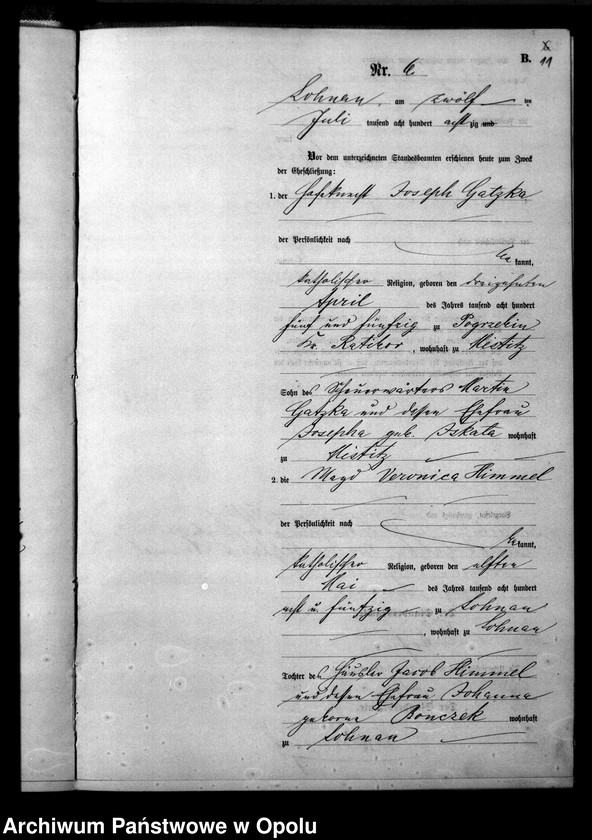 B.
11
Nr. 6.
Lohnau, am zwölf ten
Juli tausend acht hundert acht zig und
Vor dem unterzeichneten Standesbeamten erschienen heute zum Zweck
der Eheschließung:
1. der Joseph Gatzka
der Persönlichkeit nach
be kannt,
katholischer Religion, geboren den dreizehnten
April des Jahres tausend acht hundert
fünf und fünfzig zu Pogrzebin
Kr. Ratibor, wohnhaft zu Mistitz
Sohn des Scheuerwärters Martin
Gatzka und dessen Ehefrau
Josepha geb. Iskala wohnhaft
zu Mistitz
2. die Magd Veronica Himmel
der Persönlichkeit nach
be kannt,
katholischer Religion, geboren den elften
Mai des Jahres tausend acht hundert
acht u. fünfzig zu Lohnau
, wohnhaft zu Lohnau
Tochter des Häusler Jacob Himmel
und dessen Ehefrau Johanna
geborne Bonczek wohnhaft
zu Lohnau
Archiwum Państwowe w Opolu